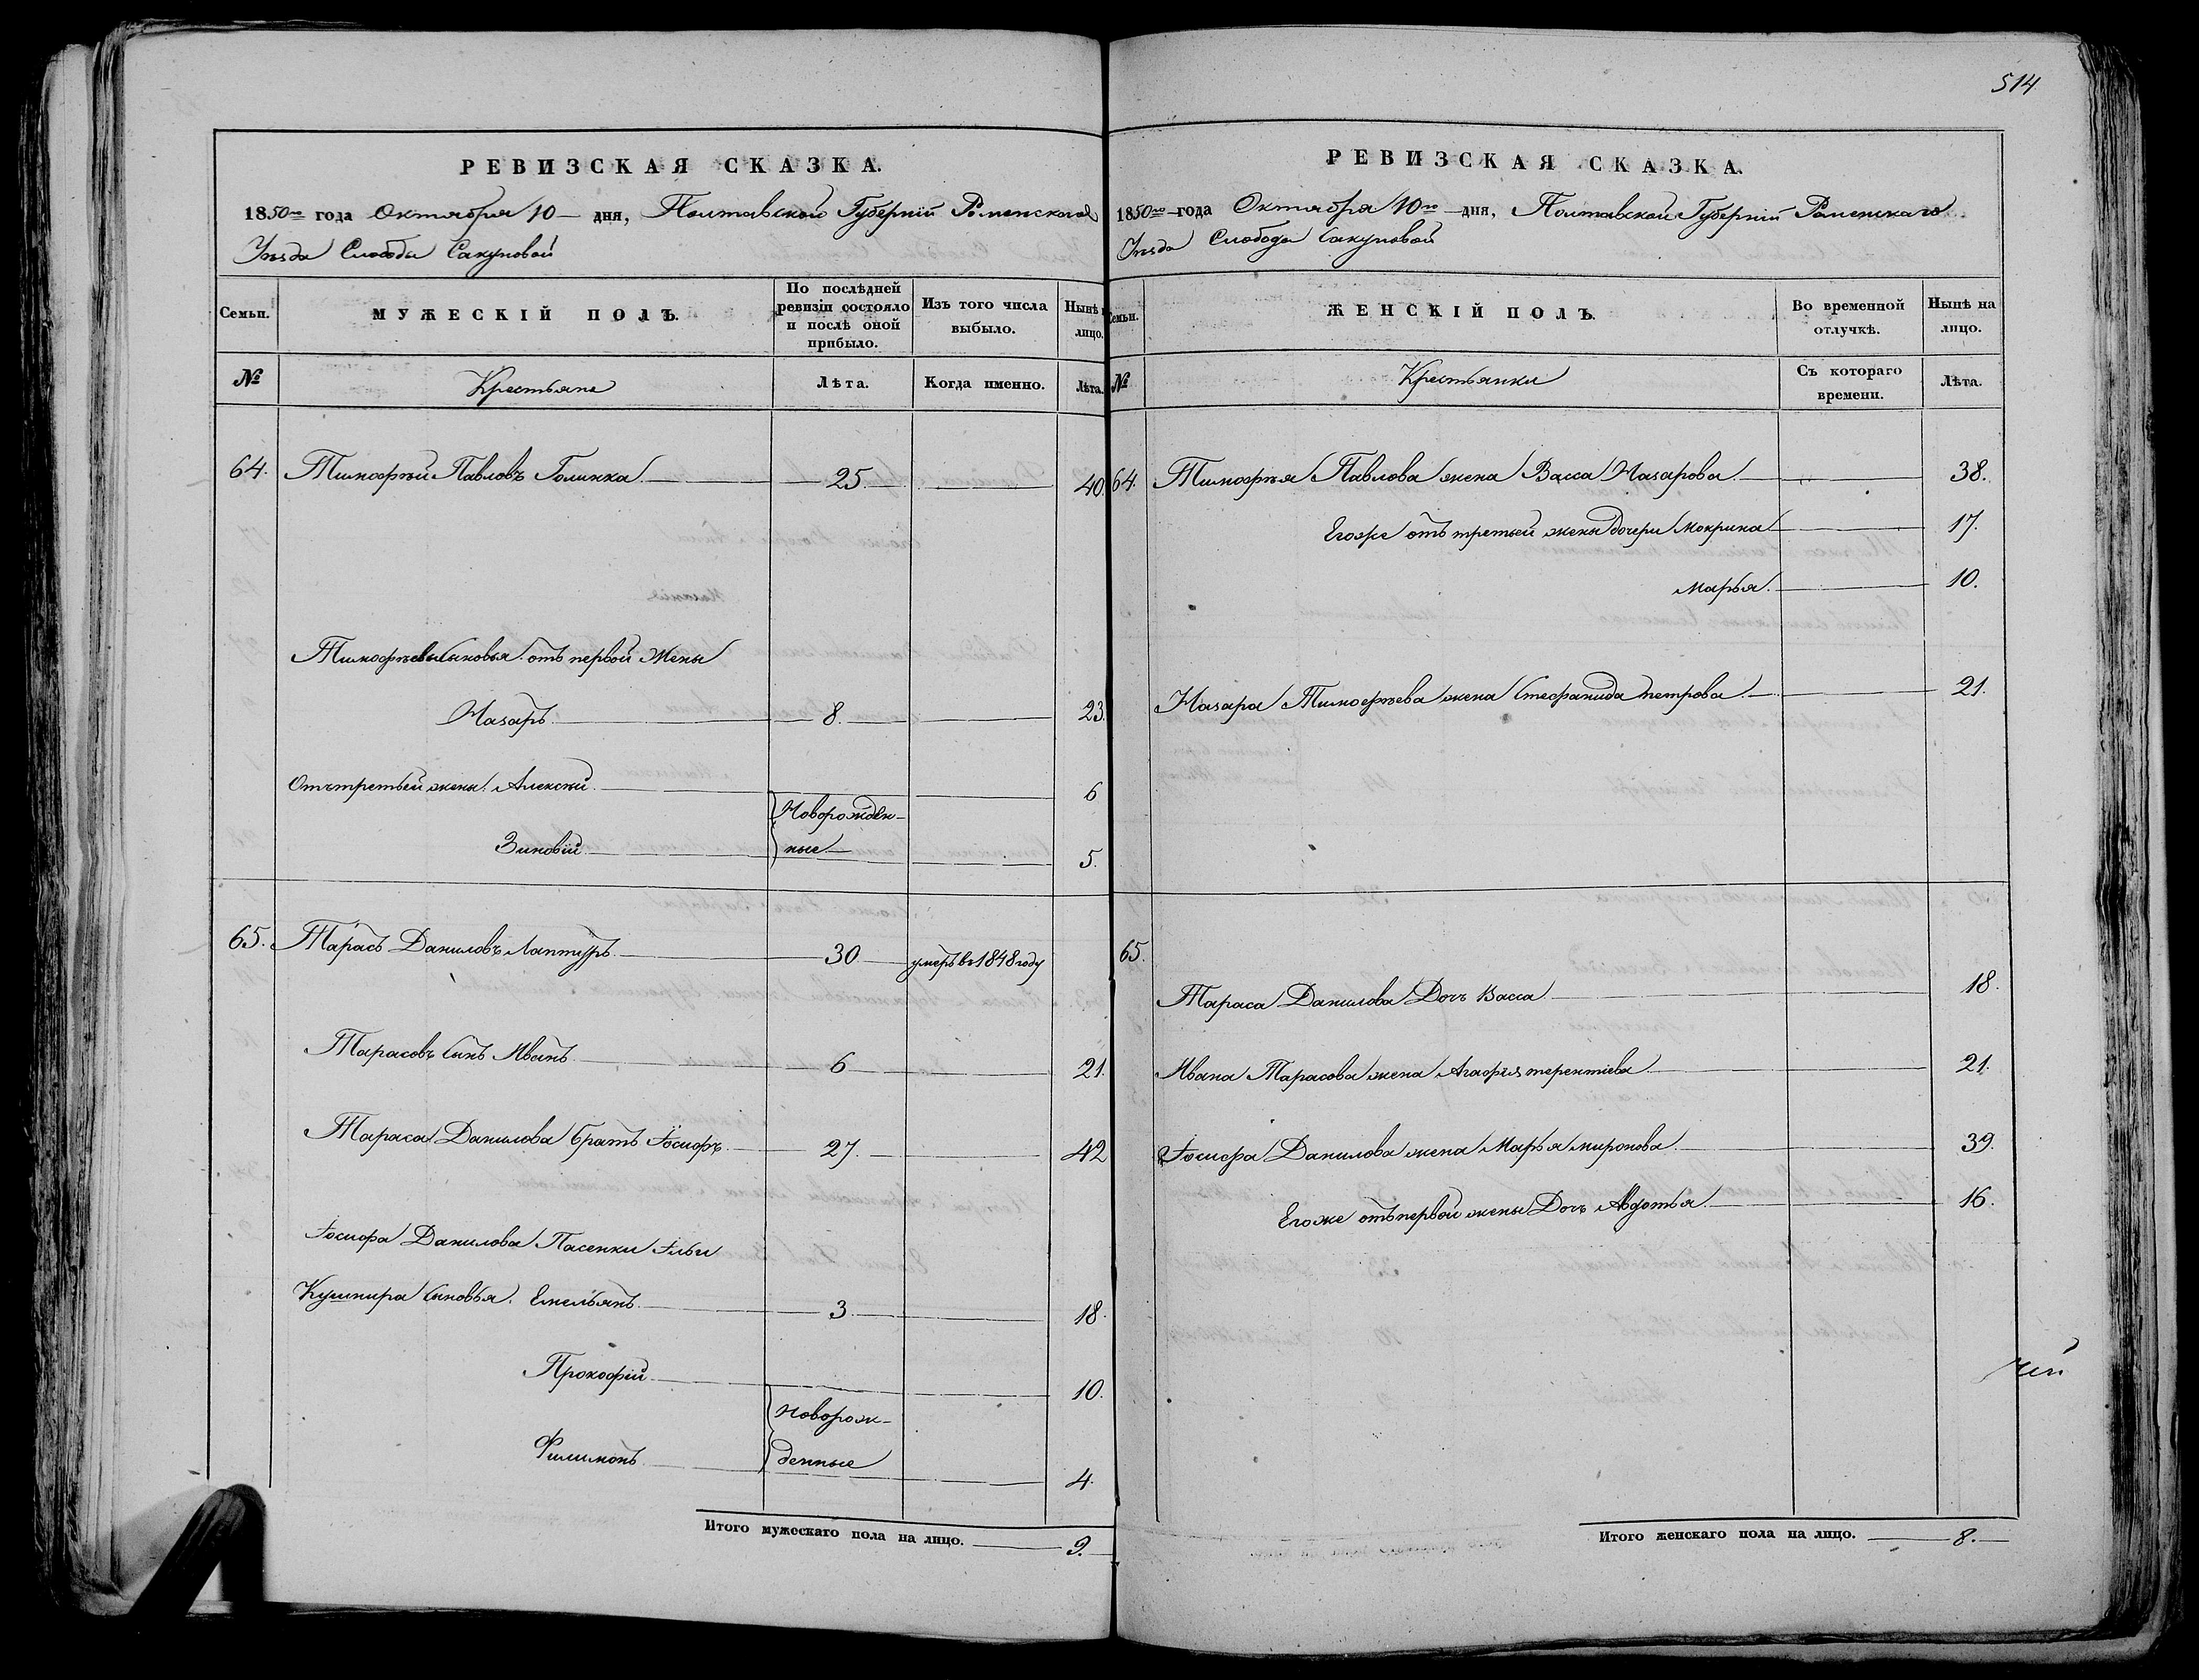 514
РЕВИЗСКАЯ СКАЗКА.
1850го года Октября 10 дня, Полтавской Губернїи Роменского
Уѣзда Слободы Сакуновой
Семьи. МУЖЕСКІЙ ПОЛЪ. По послѣдней ревизіи состояло и послѣ оной прибыло. Изъ того числа выбыло. Нынѣ лицо.
№ Крестьяне Лѣта. Когда именно. Лѣта.
64. Тимофѣй Павловъ Голинка. 25. 40.
Тимофѣевы Сыновья отъ первой Жены
Назаръ 8. 23.
Отъ третьей жены Алексѣй 6
Новорожден-
Зиновїй ные 5.
65. Тарасъ Даниловъ Лаптуръ 30 умеръ въ 1848 году
Тарасовъ Сынъ Иванъ 6 21.
Тараса Данилова Братъ Іосифъ 27. 42
Іосифа Данилова Пасенки Ильи
Кушнира Сыновья. Емельянъ 3. 18.
Прокофїй 10.
Новорож-
Филимонъ денные 4.
Итого мужескаго пола на лицо. 9.
РЕВИЗСКАЯ СКАЗКА.
1850го года Октября 10го дня, Полтавской Губернїи Роменскаго
Уѣзда Слобода Сакуновой
Семьи. ЖЕНСКІЙ ПОЛЪ. Во временной отлучкѣ. Нынѣ на лицо.
№ Крестьянки Съ котораго времени. Лѣта.
64. Тимофѣя Павлова жена Васса Назарова 38.
Егоже отъ третьей жены дочери Мокрина 17.
Марья. 10.
Назара Тимофѣева жена Стефанида петрова 21.
65.
Тараса Данилова Дочъ Васса 18.
Ивана Тарасова жена Агафїя терентїева 21.
Іосифа Данилова жена Марья миронова 39.
Егоже отъ первой жены Дочъ Авдотья 16.
Итого женскаго пола на лицо. 8.